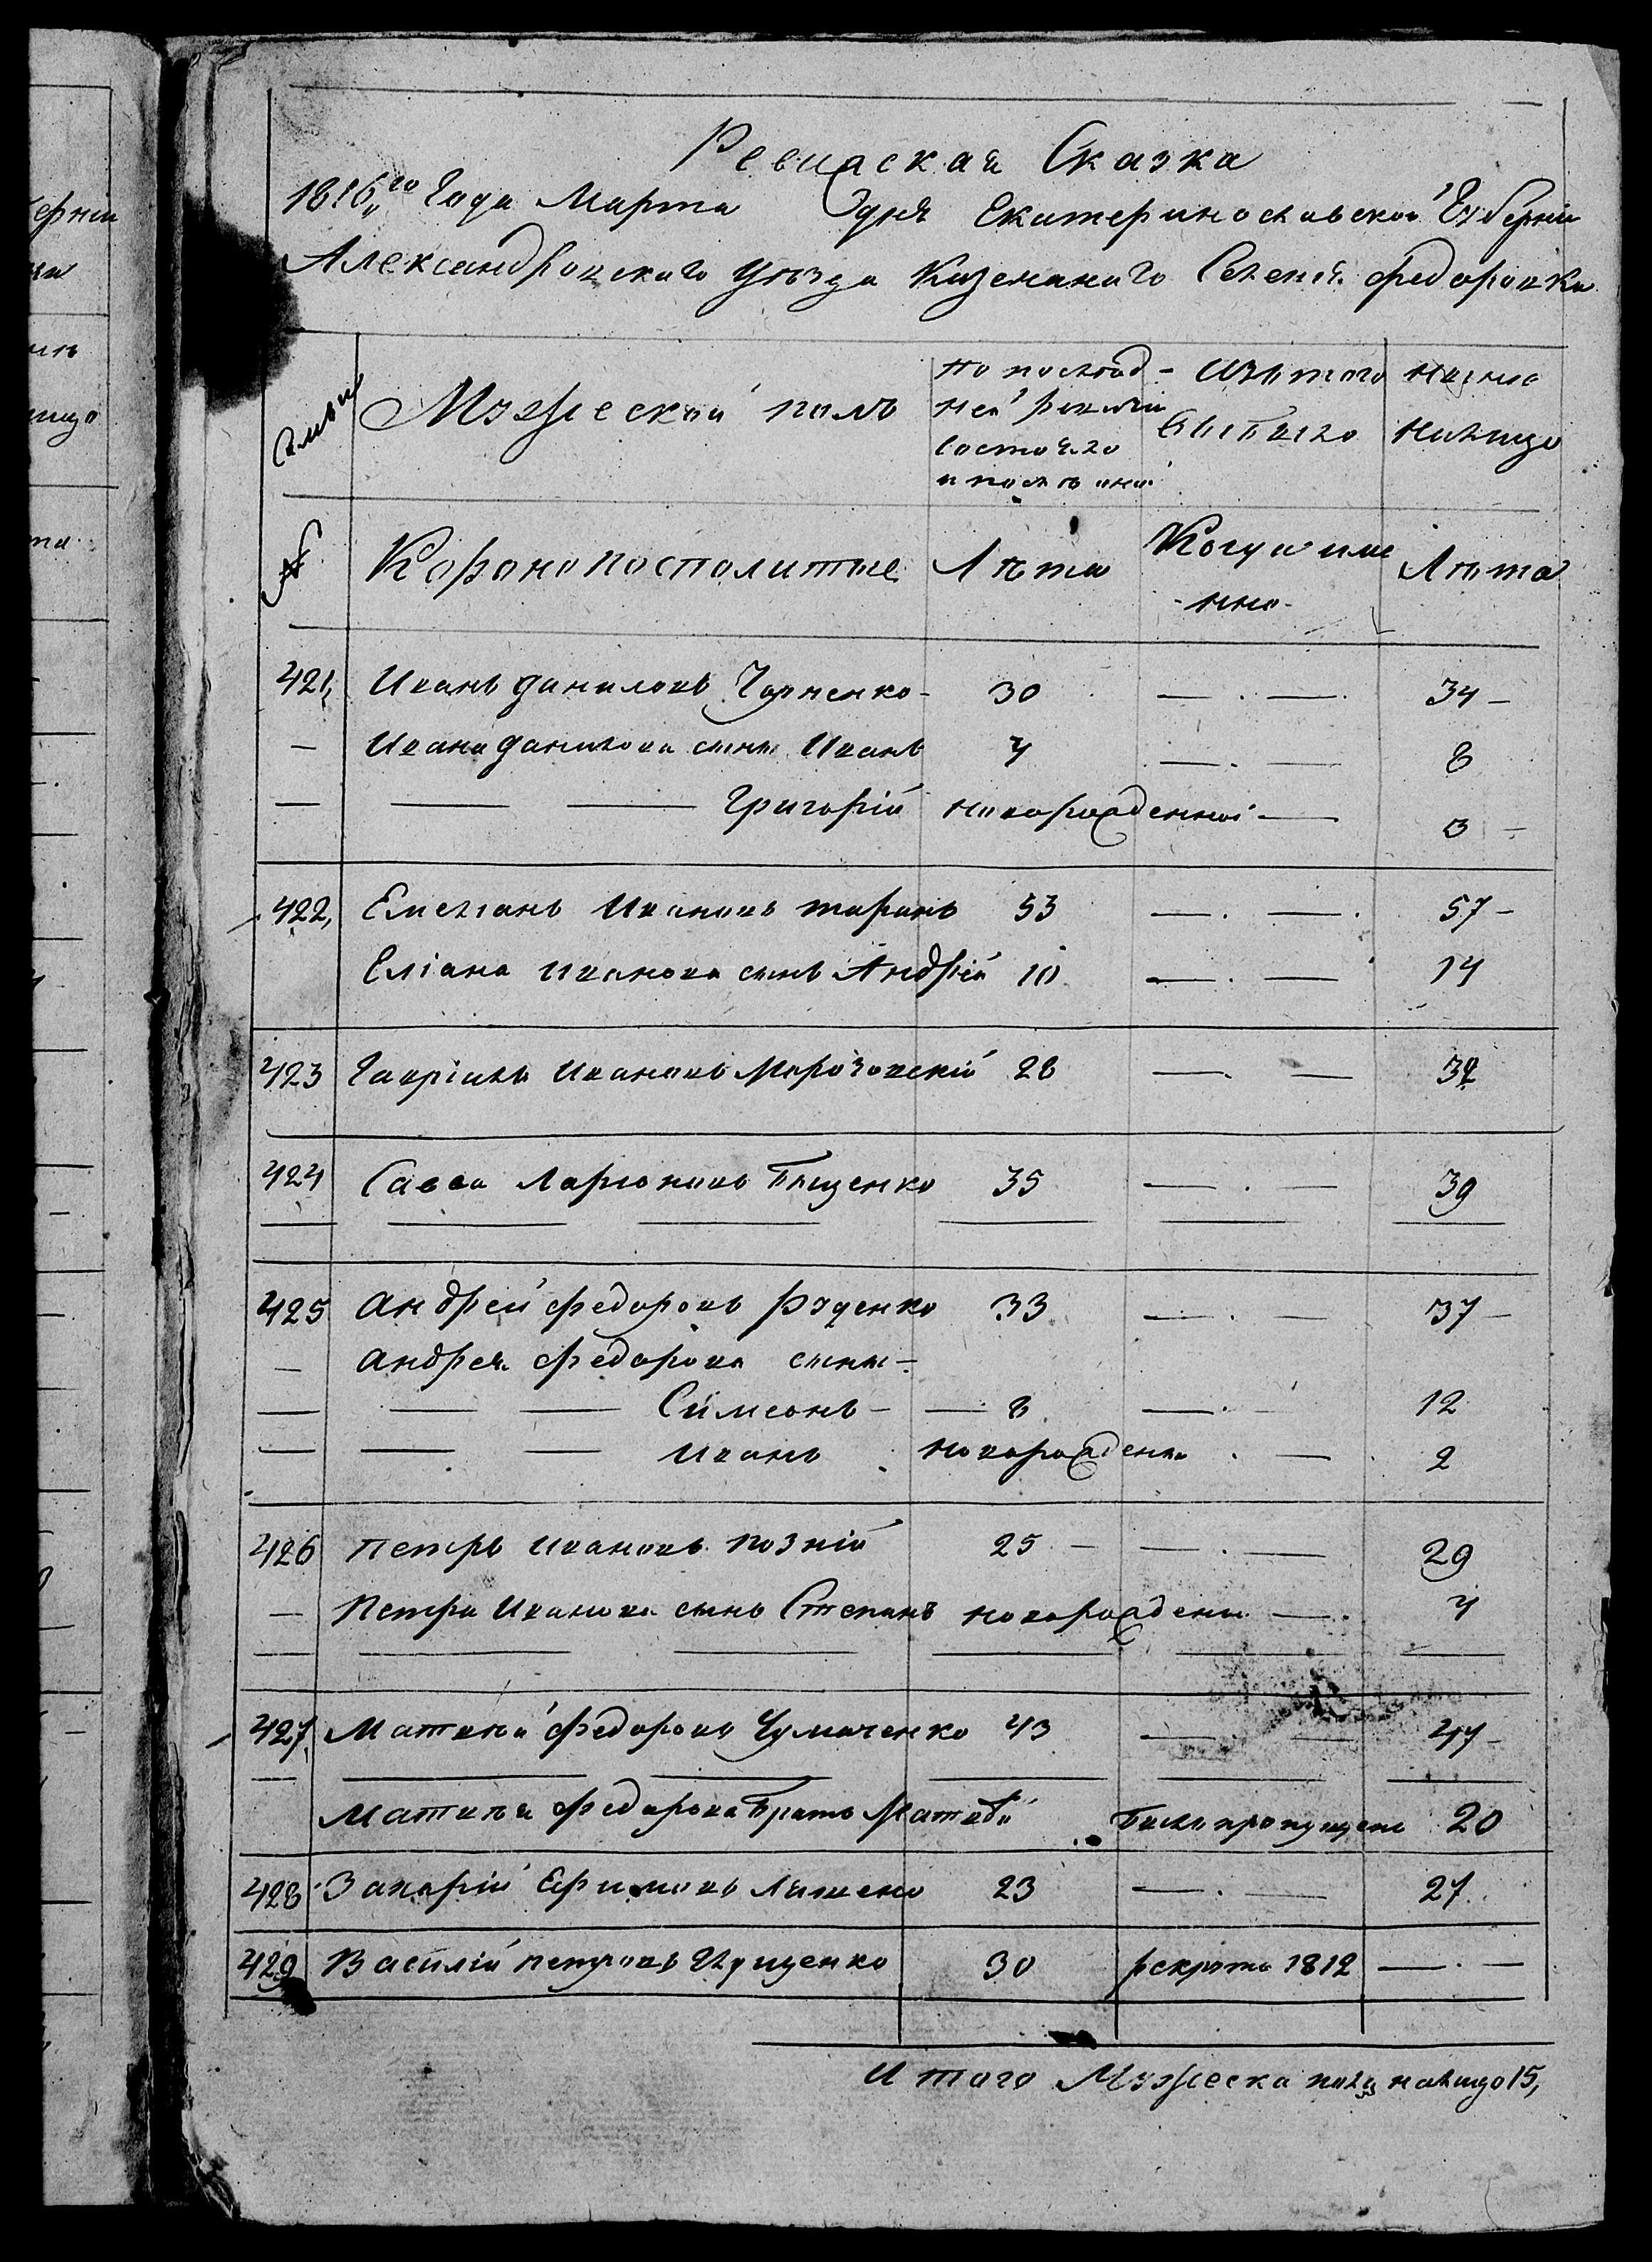 Ревизская Сказка
1816го Года Марта дня Екатеринославской Губерніи
Александровского уѣзда Казеннаго Селенія Федоровки
Семьи
Мужеской полъ
по послѣд-
ней ревизіи
состояло
и послѣ оной
Изъ того
выбыло
ныне
налицо
№
Коронопосполитые
Лѣта
Когда име
нно
Лѣта
421, Иванъ Даниловъ Чорненко 30 34
Ивана Данилова сыны Иванъ 4 8
Григорій новорожденный 3
422, Емеліанъ Ивановъ таранъ 53 57
Еліана Иванова сынъ Андрій 10 14
423 Гавріилъ Ивановъ Морозовскій 28 32
424 Савва Ларіоновъ Бищенко 35 39
425 Андрей Федоровъ Руденко 33 37
Андрея Федорова сыны
Симеонъ 8 12
Иванъ новорожденъ 2
426 Петръ Ивановъ Позній 25 29
Петра Иванова сынъ Степанъ новорожденъ 4
427, Матвѣй Федоровъ Чумаченко 43 47
Матвѣя Федорова Братъ Матвѣй былъ пропущенъ 20
428 Захарій Ефимовъ 23 27
429 Василій Петровъ Грищенко 30 рекрутъ 1812
Итого Мужеска пола налицо 15,
ерніи